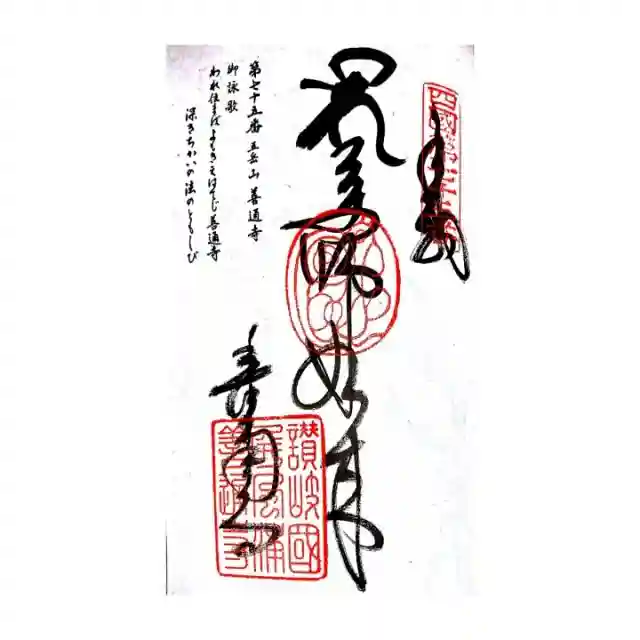 奉納
薬師如来
善通寺
讃岐國
屏風浦
善通寺
第七十五番 五岳山 善通寺
御詠歌
われ住まば よもきえはてじ 善通寺
深きちかいの 法のともしび